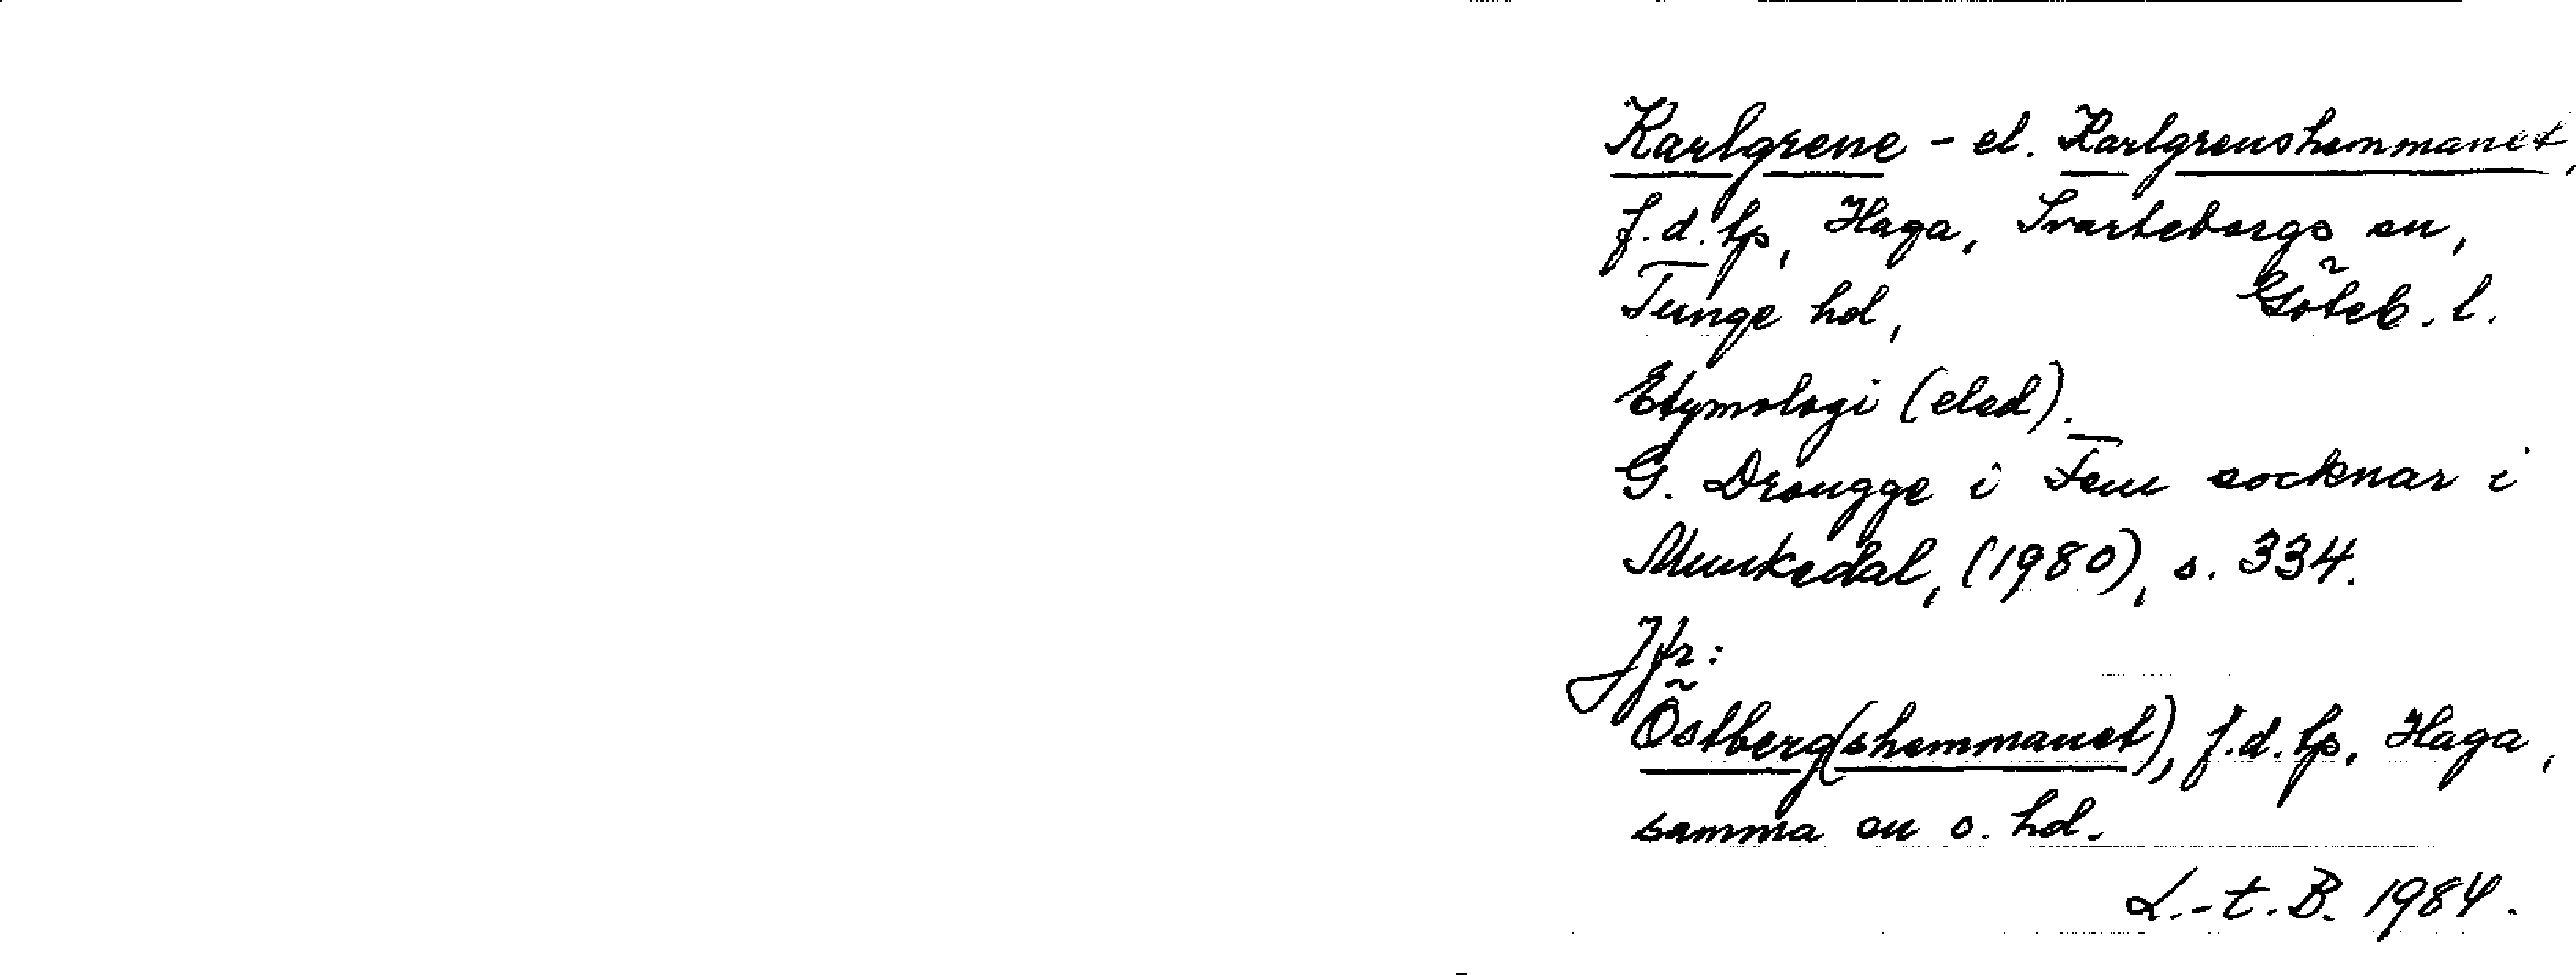 Karlgrene - el. Karlgrenshemmanet,
f.d. tp, Haga, Svarteborgs sn,
Tunge hd, Göteb. l.
Etymologi (eled).
G. Drougge i Fem socknar i
Munkedal, (1980), s. 334.
Jfr:
Östberg(shemmanet), f.d. tp, Haga,
samma sn o. hd.
L.-t. B. 1984.